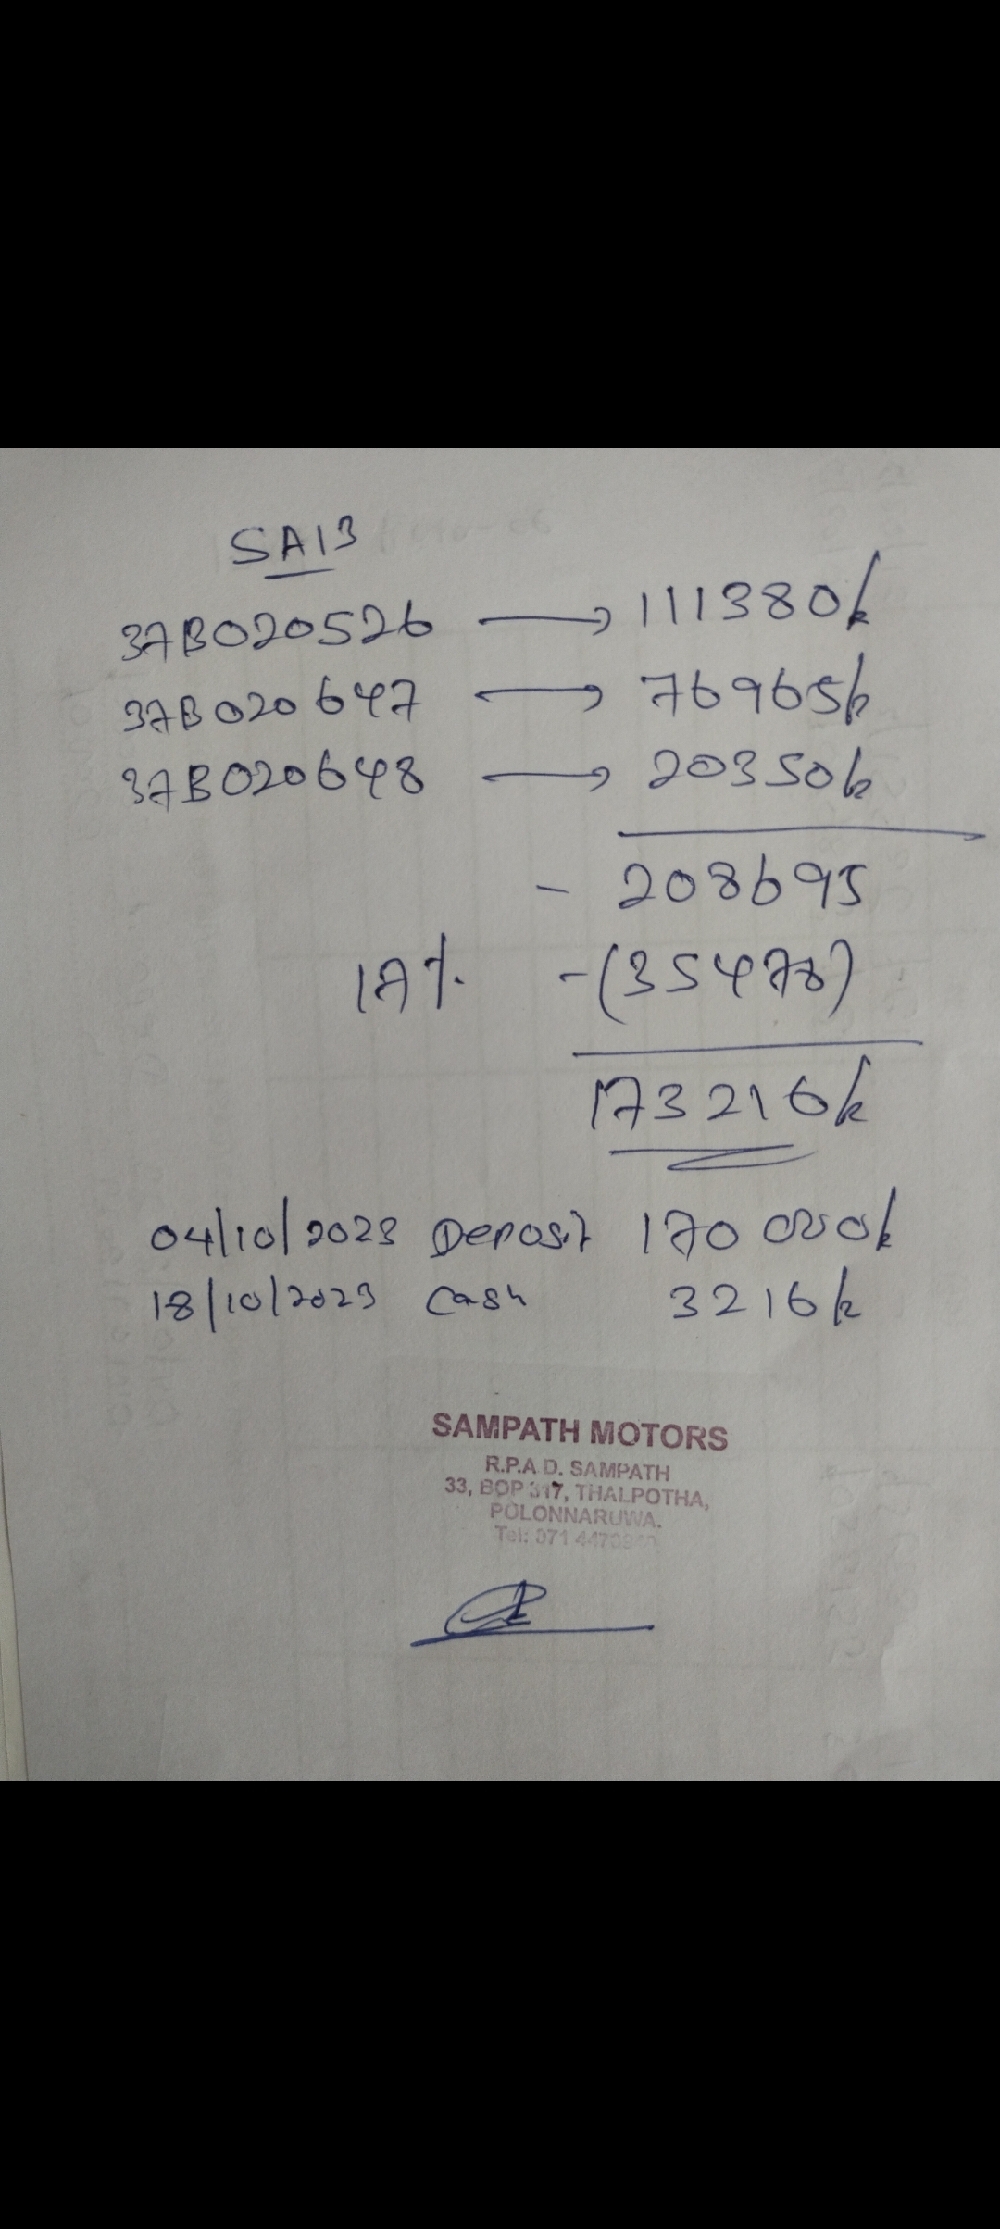 SA13
37B020526 → 111380/=
37B020647 → 76965/=
37B020648 → 20350/=
- 208695
17% -(35478)
173216/=
04/10/2023 Deposit 170000/=
18/10/2023 Cash 3216/=
SAMPATH MOTORS
R.P.A.D. SAMPATH
33, BOP 317, THALPOTHA,
POLONNARUWA.
Tel: 071